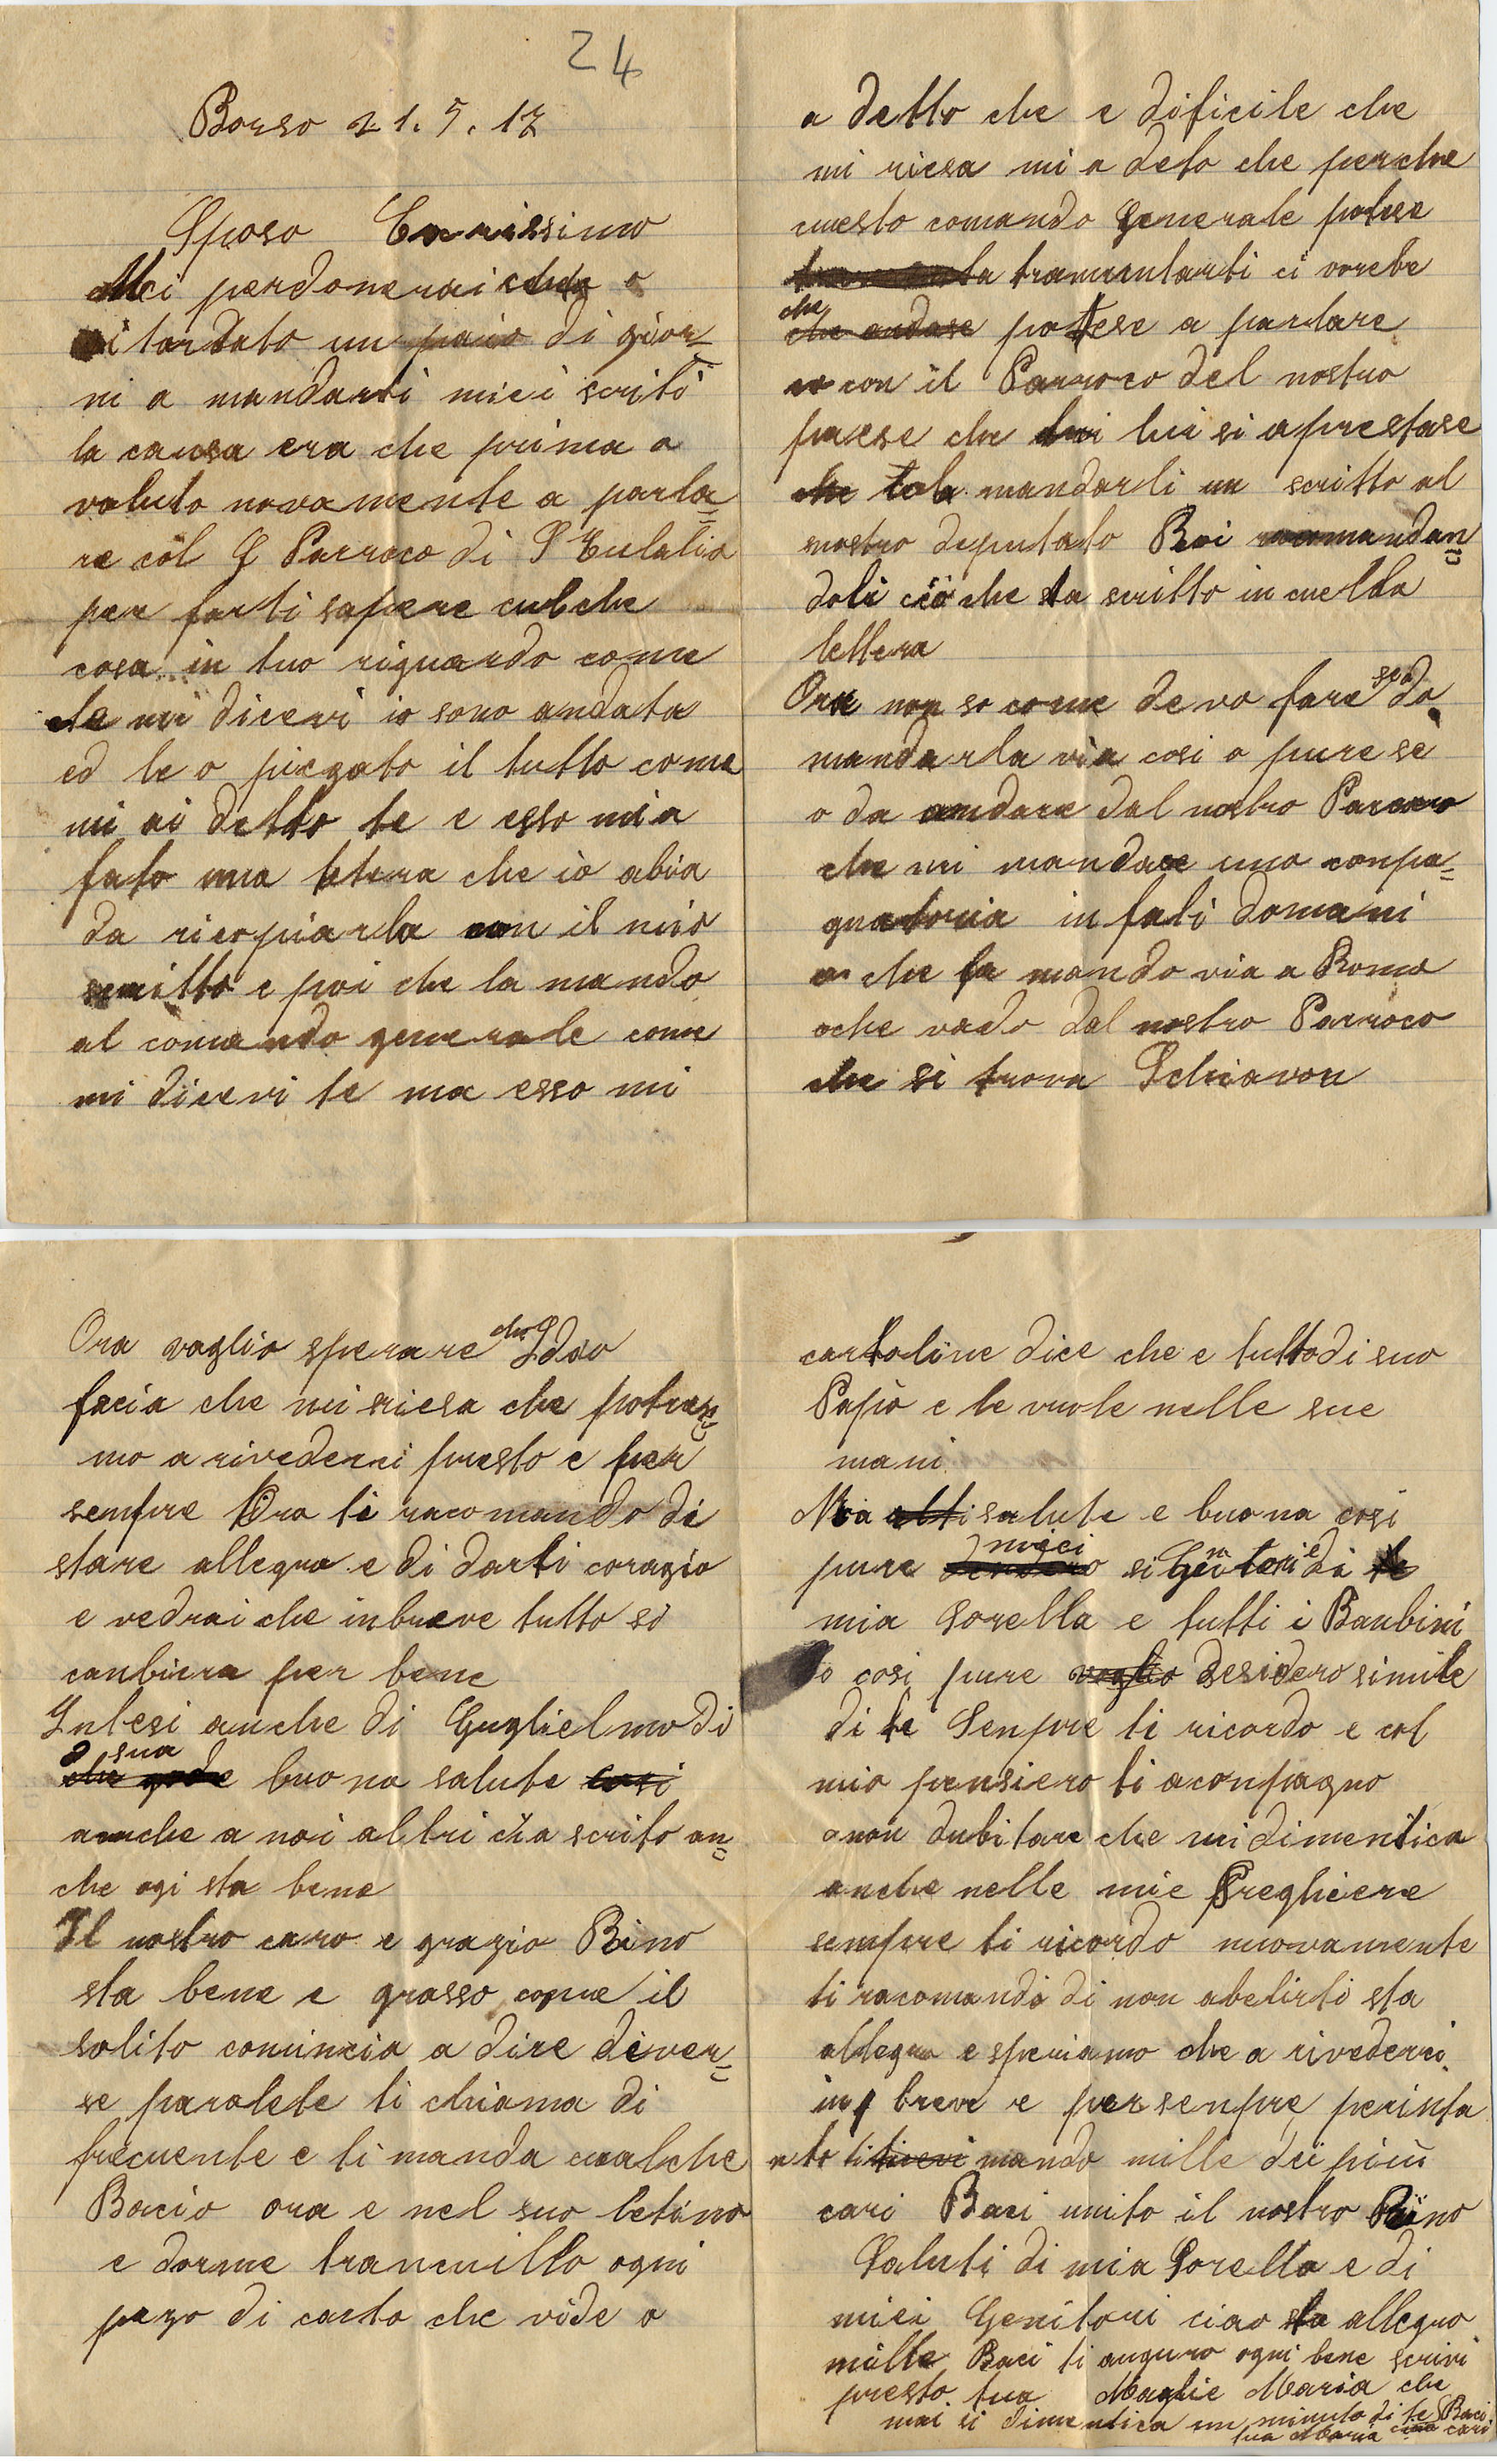 24
Borso 21.5.17
Sposo Carissimo
Mi perdonerai che o
ritardato un paio di gior=
ni a mandarti miei scriti
la causa era che prima o
voluto novamente a parla=
re col S Parroco di S Eulalia
per farti sapere cualche
cosa in tuo riguardo come
te mi dicevi io sono andata
ed le o piegato il tutto come
mi ai detto te e esso mi a
fato una letera che io abia
da ricopiarla con il mio
scritto e poi che la mando
al comando generale come
mi dicevi te ma esso mi
a detto che e dificile che
mi riesa mi a deto che perche
cuesto comando Generale potese
la tramentarti ci vorebe
che
che andase potese a parlare
con il Parroco del nostro
paese che lui si aprestase
che mandarli un scritto al
nostro deputato Roi racomandan=
doli ciò che sta scritto in cuella
lettera
Ora non so come devo fare se do
mandarla via cosi o pure se
o da andare dal nostro Parroco
che mi mandase una conpa=
gnatoria infati domani
o che la mando via a Roma
o che vado dal nostro Parroco
che si trova Schiavon
Ora voglio sperare che Idio
facia che mi riesa che potre=
mo a rivederci presto e per
sempre Ora ti racomando di
stare allegro e di darti coragio
e vedrai che inbreve tutto si
canbiera per bene
Intesi anche di Guglielmo di
sua
che gode buona salute cosi
anche a noi altri cia scrito an=
che ogi sta bene
Il nostro caro e grazio Bino
sta bene e grasso come il
solito comincia a dire diver=
se parolete ti chiama di
frecuente e ti manda cualche
Bacio ora e nel suo letino
e dorme trancuillo ogni
pezo di carta che vide o
cartoline dice che e tutto di suo
Papio e le vuole nelle sue
mani
Mia salute e buona cosi
pure miei Genitori e di
mia Sorella e tutti i Banbini
cosi pure voglio desidero simile
di te Senpre ti ricordo e col
mio pensiero ti aconpagno
non dubitare che mi dimentica
anche nelle mie Preghiere
sempre ti ricordo nuovamente
ti racomando di non abelirti sta
allegro e speriamo che a rivederci
in breve e per senpre perinta
nto ti mando mille dei più
cari Baci unito il nostro Bino
Saluti di mia Sorella e di
miei Genitori ciao sta allegro
mille Baci ti auguro ogni bene scrivi
presto tua Moglie Maria che
mai si dimentica un minuto di te Baci
tua Maria ciao cari